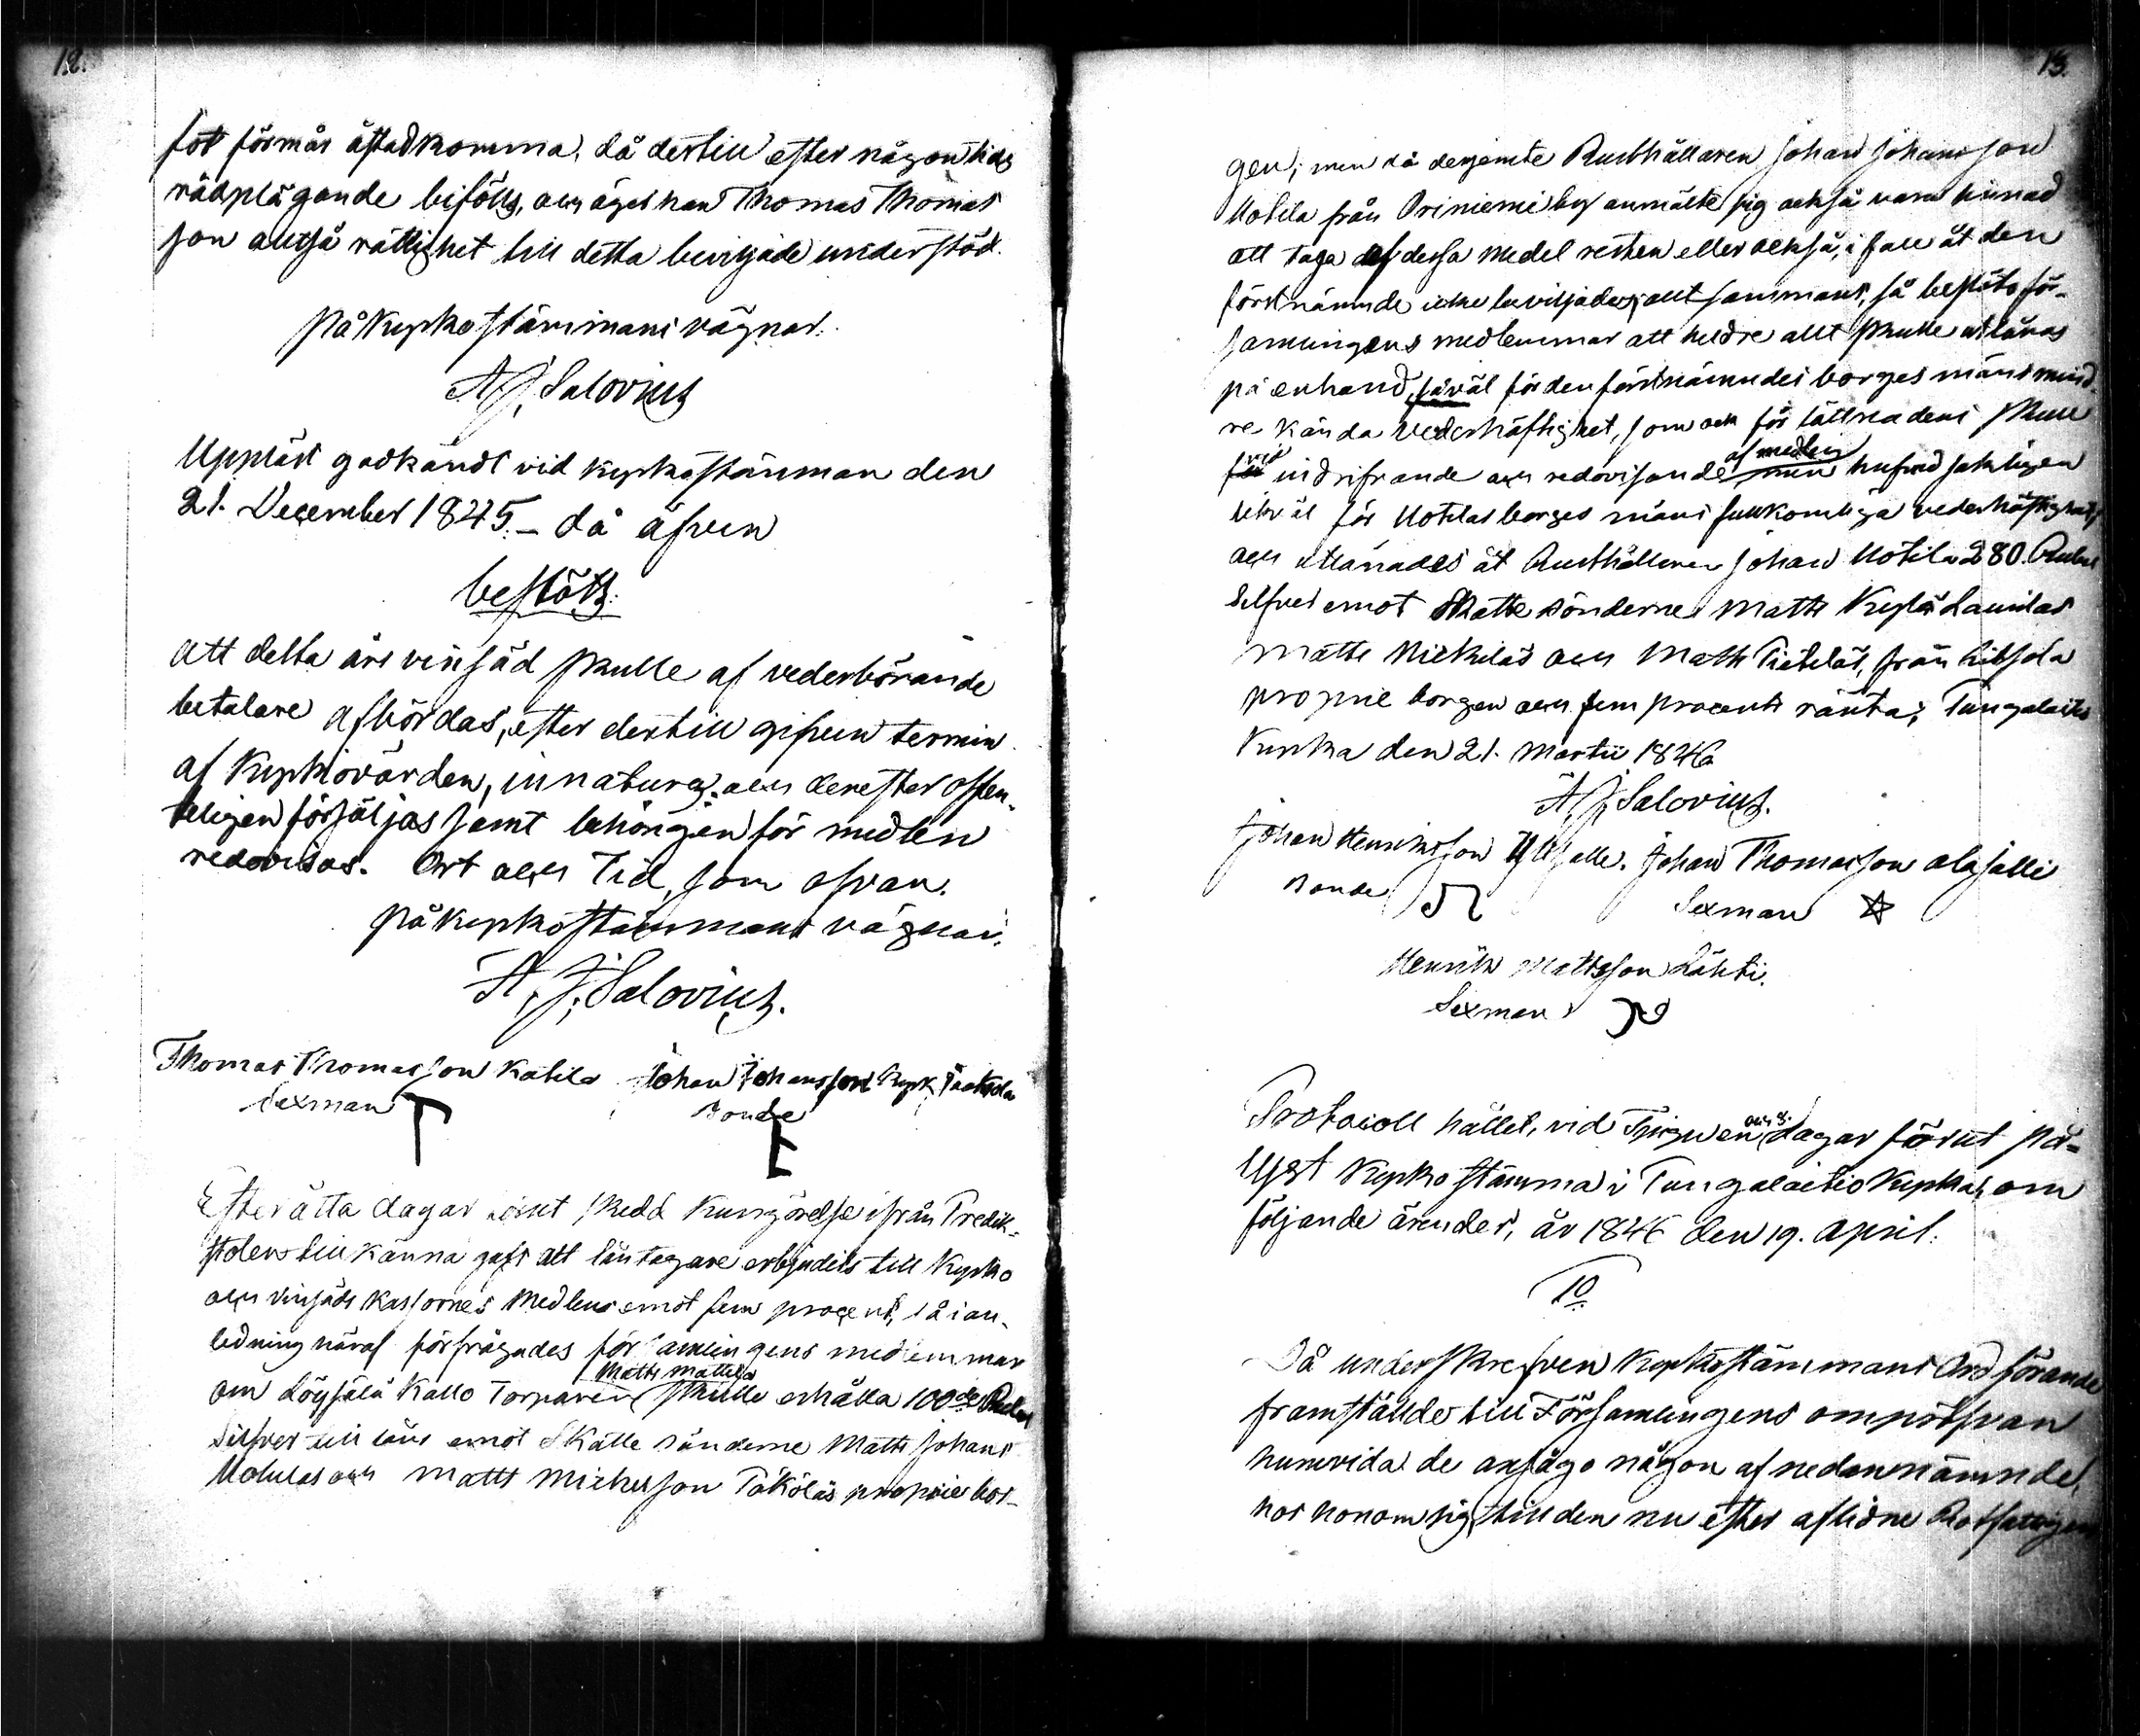 12.
fot förmår åstadkomma, då dertill efter någon tids
rådplägande bifölls, och äger han Thomas Thomas
son alltså rättighet till detta beviljade understöd.
På Kyrkostämmans vägnar.
A. J. Salovius
Uppläst godkändt vid Kyrkostämman den
21. December 1845. – då äfven
beslöts:
att detta års vinsäd skulle af vederbörande
betalare afbördas, efter dertill gifven termin
af Kyrkovärden, in natura, och derefter offen-
teligen försäljas samt behörigen för medlen
redovisas. Ort och Tid, som ofvan.
På Kyrkostämmans vägnar.
A. J. Salovius.
Thomas Thomasson Katila Johan Johansson Kyrk
Sexman Bonde
Efter åtta dagar förut skedd Kungörelse ifrån Predik-
stolen till känna gafs att låntagare erbjudits till Kyrko
och vinsäds Kassornes Medlens emot fem procent, så i an-
ledning häraf förfrågades församlingens medlemmar
Matts Mattila
om Löysälä Kallo Torparen skulle erhålla 100de Rubel
Silfver till låns emot Skatte bönderne Matts Johans
och Matts Michelson Päköläs proprie bor-
13.
gen; men då derjemte Rusthållaren Johan Johansson
Uotila från Oriniemi by anmälte sig också vara hinad
att taga af dessa medel resten eller också, i fall åt den
förstnämnde icke beviljades, allt sammans, så beslöto för-
samlingens medlemmar att heldre allt skulle utlånas
på en hand, såväl för den förstnämndes borges mäns mind-
re kända vederhäftighet, som och för lättnadens skull
vid af medlen
indrifvande och redovisande hufvudsakligen
likväl för Uotilas borges mäns fullkomliga vederhäftighet,
och utlånades åt Rusthållaren Johan Uotila 280. Rubel
Silfver emot Skatte bönderne Matts Kylä Laurilas
Matts Mickiläs och Matts Pietiläs, från
proprie borgen och fem procents ränta; Tungalaitio
Kyrka den 21. Martii 1846
A. J. Salovius.
Johan Henriksson Yli Jalli. Johan Thomasson Ala Jalli
Bonde Sexman
Henrik Mattsson Lähti.
Sexman
och 8.
Protocoll hållet, vid Tjugu en dagar förut på-
lyst Kyrko stämma i Tungalaitio Kyrka, om
följande ärender, år 1846 den 19. April.
1o
Då underskrefven Kyrkostämmans Ordförande
framställde till Församlingens ompröfvan
huruvida de ansågo någon af nedannämnde,
hos honom sig, till den nu efter aflidne Rotfattigen